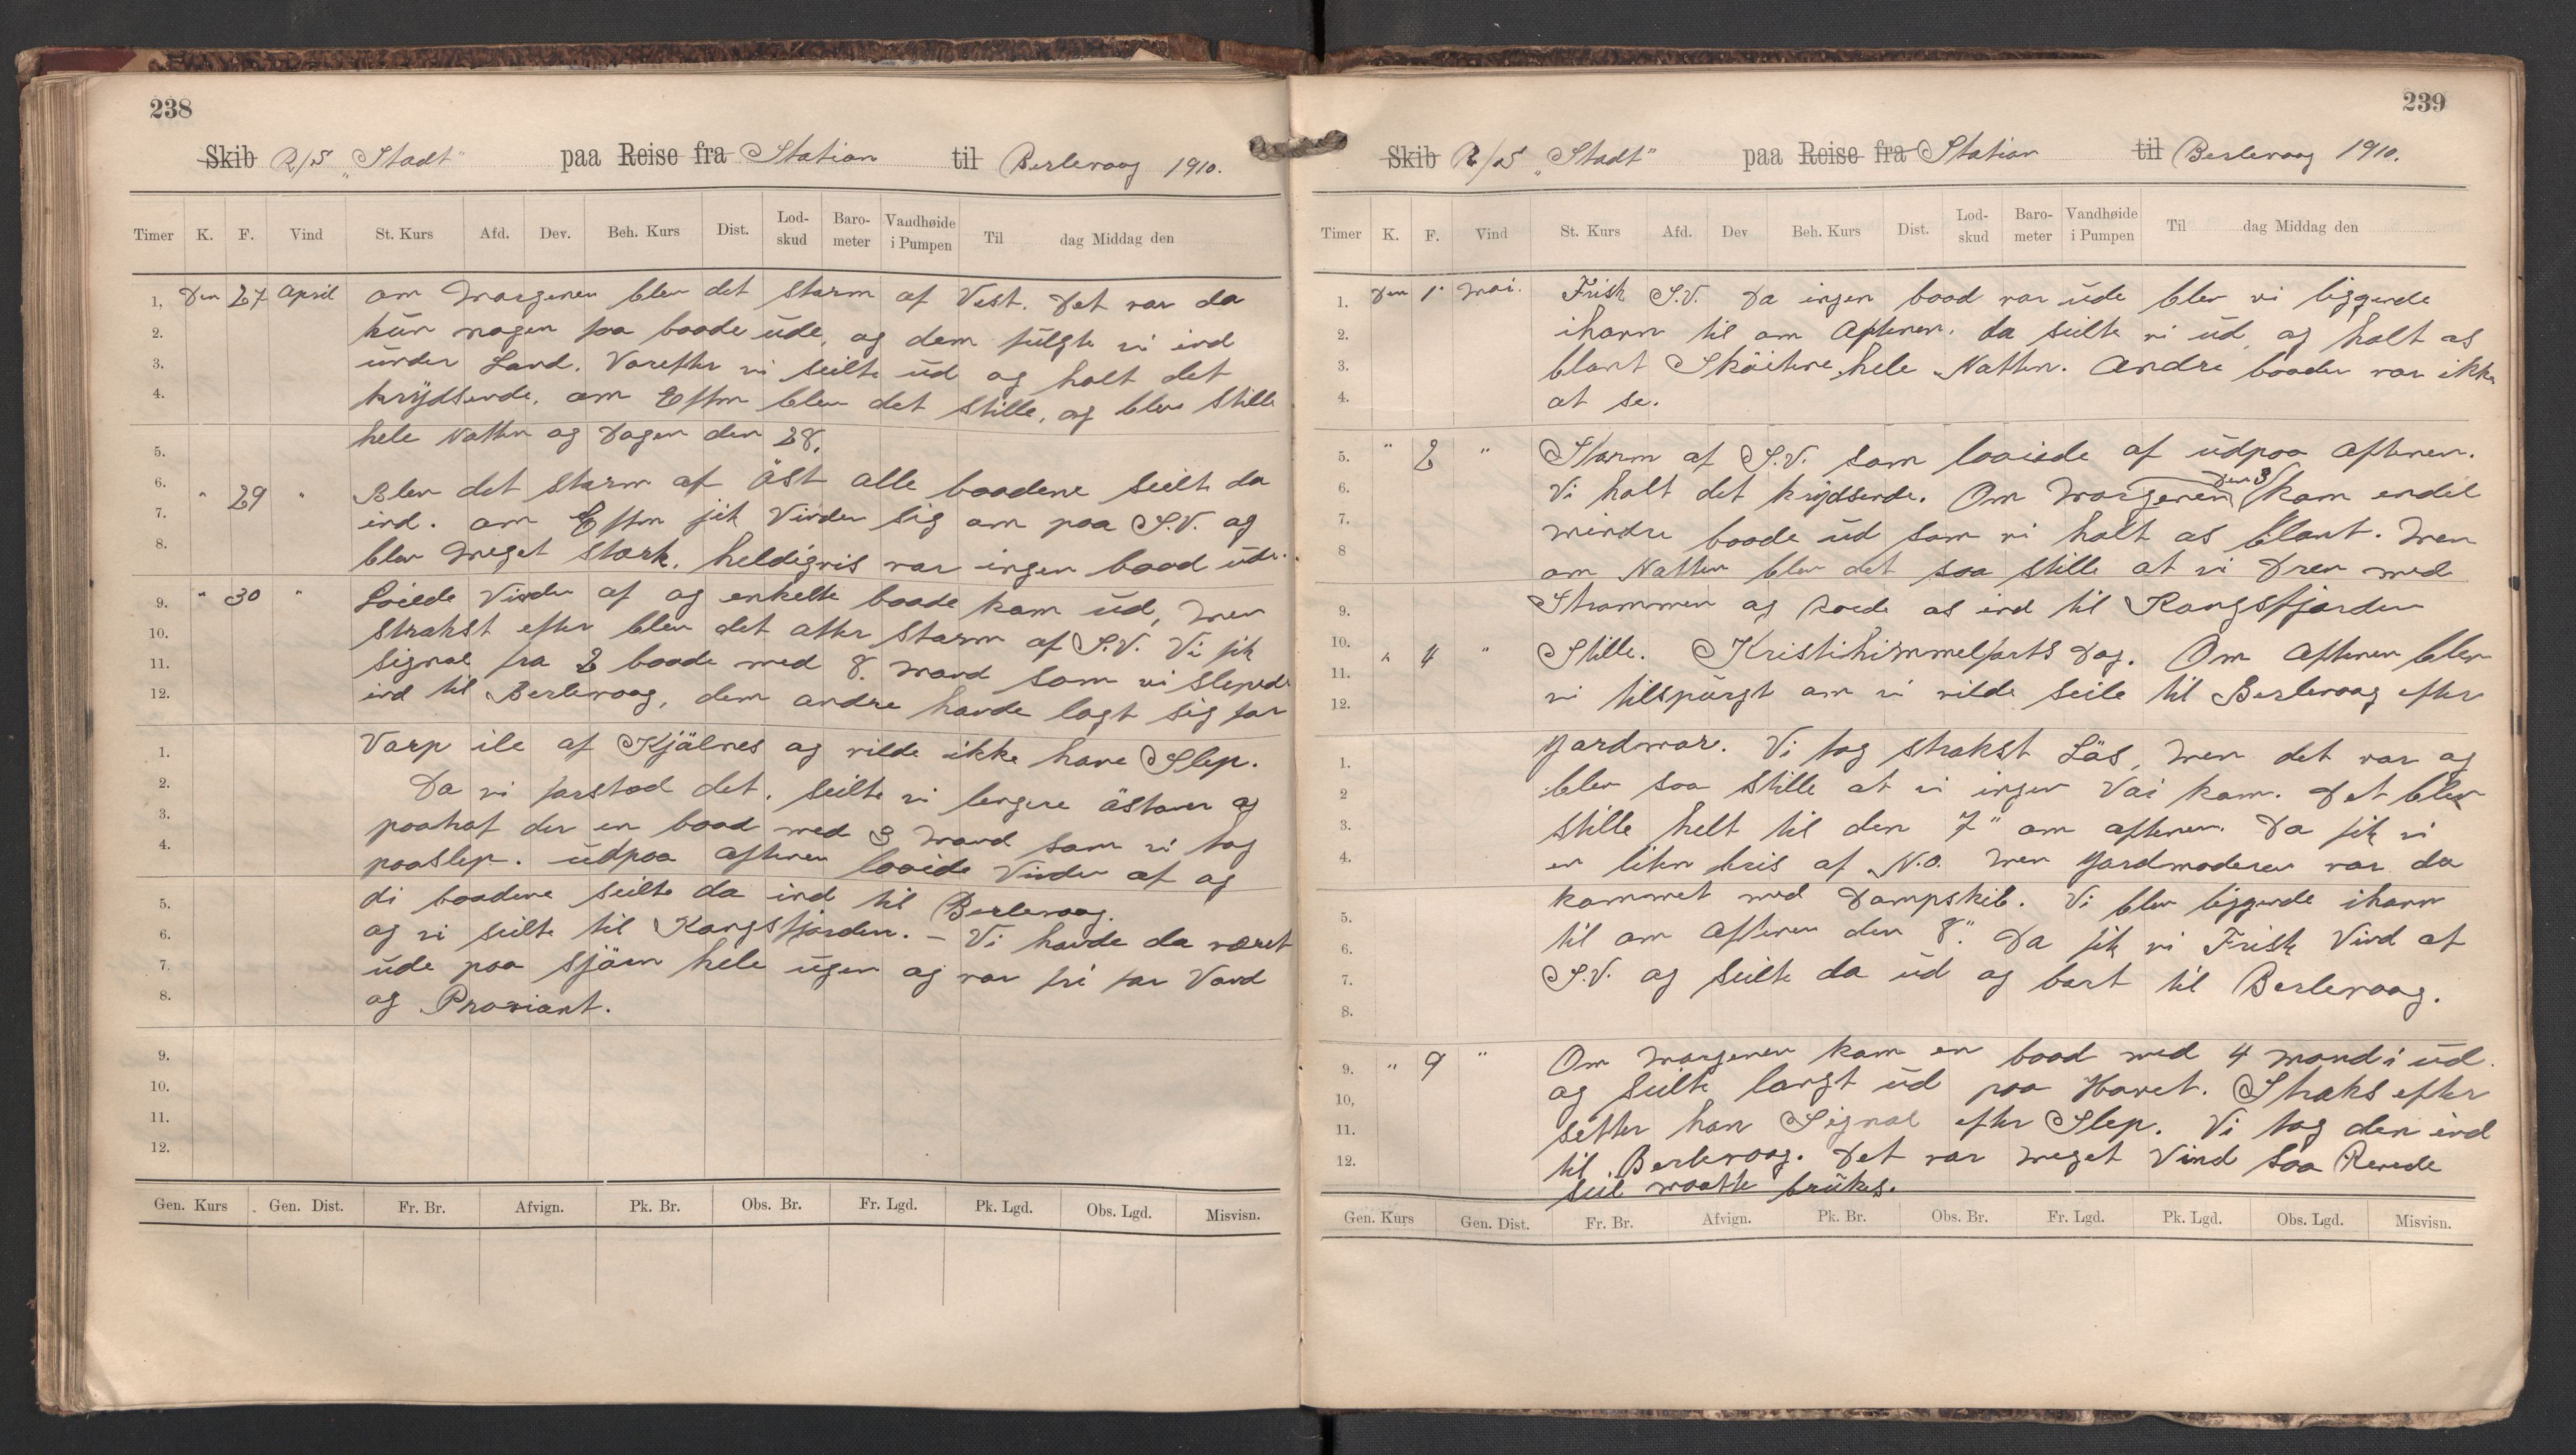 238
Skib R/S „Stadt" paa Reise fra Station til Berlevaag 1910.
Timer K. F. Vind St. Kurs Afd. Dev. Beh. Kurs Dist. Lod-skud Baro-meter Vandhøide i Pumpen Til dag Middag den
1, Den 27 April om Morgenen blev det storm af Vest. Det var da
2. kun nogen faa baade ude, og dem fulgte vi ind
3. under Land. Varefter vi seilte ud og halt det
4. krydsende. om Eftm blev det stille, og blev stille
5. hele Natten og Dagen den 28.
6. " 29 " Blev det storm af öst alle baadene seilte da
7. ind. om Eftm jik Vinden sig om paa S.V. og
8. blev meget stærk. heldigvis var ingen baad ude.
9. " 30 " Löiede Vinden af og enkelte baade kom ud, men
10. strakst efter blev det atter storm af S.V. Vi fik
11. signal fra 2 baade med 8. mand som vi slepede
12. ind til Berlevaag, dem andre havde lagt sig for
1. Varp ile af Kjälnes og vilde ikke have Slep.
2. Da vi forstod det, seilte vi lengere östover og
3. paatraf der en baad med 3 mand som vi tog
4. paaslep. udpaa aftenen looide Vinden af og
5. di baadene seilte da ind til Berlevaag.
6. og vi seilte til Kongsfjorden. - Vi havde da været
7. ude paa sjöen hele ugen og var fri for Vand
8. og Proviant.
9.
10.
11.
12.
Gen. Kurs Gen. Dist. Fr. Br. Afvign. Pk. Br. Obs. Br. Fr. Lgd. Pk. Lgd. Obs. Lgd. Misvisn.
239
Skib R/S „Stadt" paa Reise fra Station til Berlevaag 1910.
Timer K. F. Vind St. Kurs Afd. Dev Beh. Kurs Dist. Lod-skud Baro-meter Vandhøide i Pumpen Til dag Middag den
1. Den 1. Mai. Frisk S.V. Da ingen baad var ude blev vi liggende
2. ihavn til om Aftenen. da seilte vi ud, og halt os
3. blant Sköitene hele Natten. Andre baader var ikke
4. at se.
5. " 2 " Storm af S.V. som looiede af udpaa Aftenen.
6. Vi halt det krydsende. Om Morgenen Den 3 kom endel
7. mindre baade ud som vi halt os blant. Men
8 om Natten blev det saa stille at vi Drev med
9. Strommen og Roede os ind til Kongsfjorden
10. " 4 " Stille. Kristihimmelfarts Dag. Om Aftenen blev
11. vi tilspurgt om vi vilde seile til Berlevaag efter
12.
1. Jordmor. Vi tog strakst Läs, men det var og
2 blev saa stille at vi ingen Vai kom. Det blev
3. stille helt til den 7" om aftenen. Da fik vi
4. en liten bris af N.O. Men Jordmoderen var da
kommet med Dampskib. Vi blev liggende ihavn
5. til om Aftenen den 8." Da fik vi Frisk Vind af
6. S.V. og seilte da ud og bort til Berlevaag.
7.
8.
9. " 9 " Om Morgenen kom en baad med 4 mand i ud.
10, og seilte langt ud paa Havet. Straks efter
11. setter han Signal efter Slep. Vi tog den ind
12. til Berlevaag. Det var meget Vind saa Revede
seil maatte brükes.
Gen. Kurs Gen. Dist. Fr. Br. Afvign. Pk. Br. Obs. Br. Fr. Lgd. Pk. Lgd. Obs. Lgd. Misvisn.